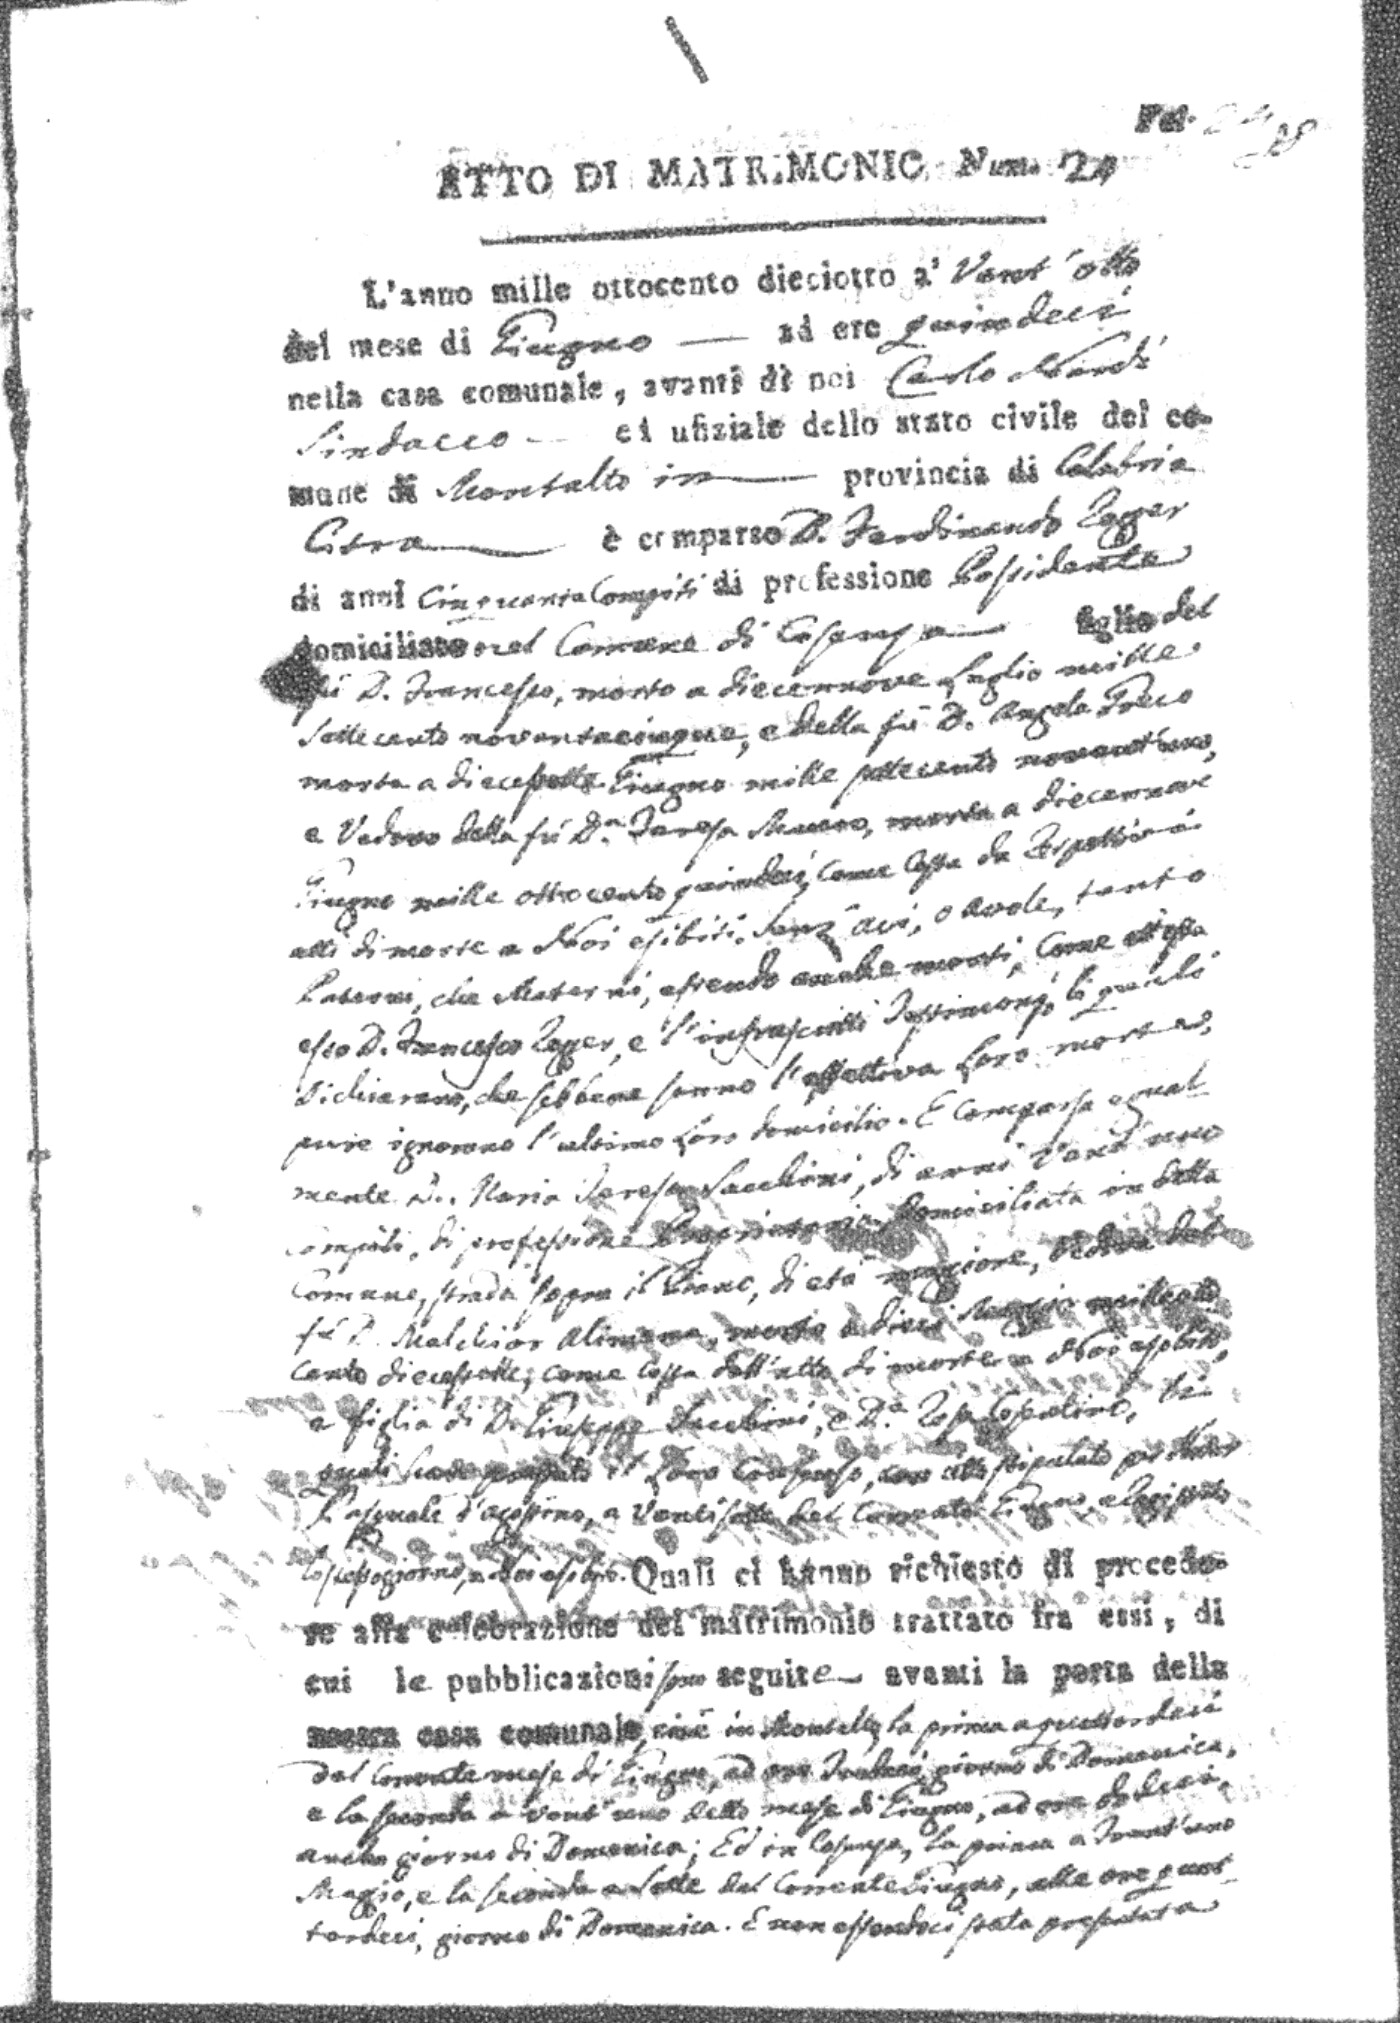 Fol. 24
28
ATTO DI MATRIMONIO Num. 24
L'anno mille ottocento dieciotto a' Vent'otto
del mese di Giugno — ad ore quindeci
nella casa comunale, avanti di noi Carlo Nardi
Sindacco — ed ufiziale dello stato civile del co-
mune di Montalto in — provincia di Calabria
Citra — è comparso D. Ferdinando Zagger
di anni Cinquanta Compiti di professione Possidente
domiciliato nel Comune di Cosenza — figlio del
fù D. Francesco, morto a diecennove Luglio mille
settecento novantacinque, e della fù D. Angela Greco
morta a diecessette Giugno mille settecento novant'uno,
e Vedovo della fù D.ª Teresa Mauro, morta a diecennove
Giugno mille ottocento quindeci, come costa da rispettivi
atti di morte a Noi esibiti. Senz'avi, o avole, tanto
Paterni, che Materni, essendo anche morti, come attesta
esso D. Francesco Zagger, e l'infrascritti Testimonj, li quali
dichiarano, che sebbene sanno l'effettiva Loro morte,
pure ignorano l'ultimo Loro domicilio. E comparsa egual-
mente D. Maria Teresa Sacchini, di anni Vent'uno
compiti, di professione Proprietaria, domiciliata in detto
Comune, strada sopra il Piano, di età maggiore, Vedova del
fù D. Melchior Alimena, morto a dieci Maggio mille otto
cento diecessette, come costa dall'atto di morte a Noi esibito,
e figlia di D. Giuseppe Sacchini, e D.ª Rosa li
quali prestato il Loro Consenso, con atto stipulato per Notar
Pasquale d'Agostino, a Ventisette del Corrente Giugno, e legistrato
lo stesso giorno, a Noi esibito. Quali ci hanno richiesto di procede-
re alla celebrazione del matrimonio trattato fra essi, di
cui le pubblicazioni sono seguite — avanti la porta della
nostra casa comunale, cioè in Montalto la prima a quattordeci
del Corrente mese di Giugno, ad ore giorno di Domenica,
e la seconda a vent'uno detto mese di Giugno, ad ore dodeci,
anche giorno di Domenica; Ed in Cosenza, la prima a trent'uno
Maggio, e la seconda a Sette del Corrente Giugno, alle ore quat-
tordeci, giorno di Domenica. E non essendoci stata presentata